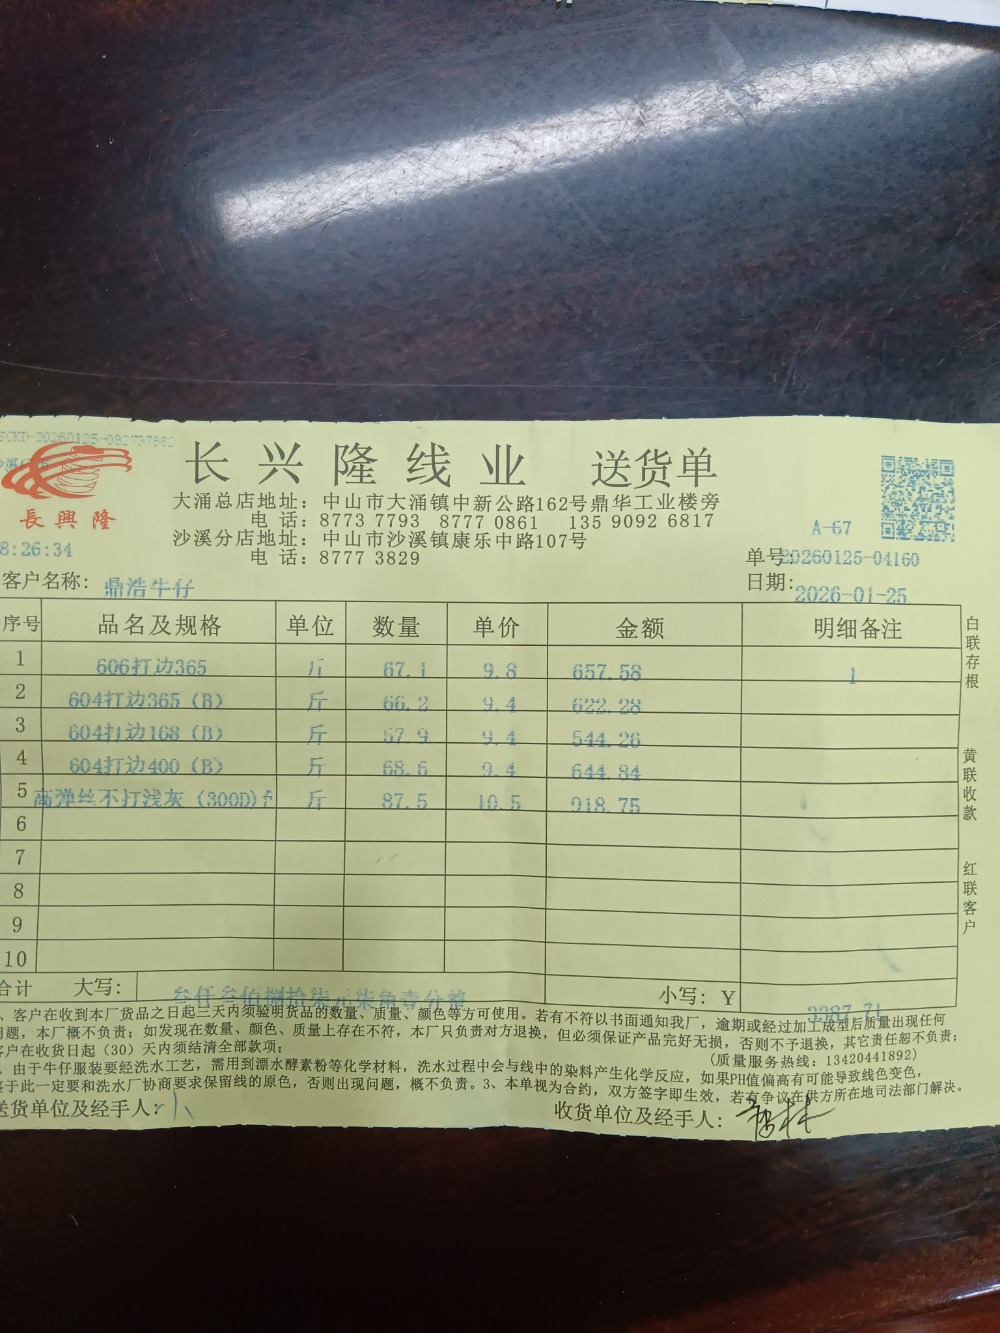 SCKD-20260125-08273788
長興隆
长兴隆线业 送货单
大涌总店地址：中山市大涌镇中新公路162号鼎华工业楼旁
电 话：8773 7793 8777 0861 135 9092 6817
沙溪分店地址：中山市沙溪镇康乐中路107号
电 话：8777 3829
8:26:34
A-67
单号:20260125-04160
客户名称：鼎浩牛仔
日期：2026-01-25
序号 品名及规格 单位 数量 单价 金额 明细备注
1 606打边365 斤 67.1 9.8 657.58 1
2 604打边365（B） 斤 66.2 9.4 622.28
3 604打边168（B） 斤 57.9 9.4 544.26
4 604打边400（B） 斤 68.6 9.4 644.84
5 高弹丝不打浅灰（300D) 斤 87.5 10.5 918.75
6
7
8
9
10
合计 大写： 叁仟叁佰捌拾柒元柒角壹分整 小写：￥ 3387.71
、客户在收到本厂货品之日起三天内须验明货品的数量、质量、颜色等方可使用。若有不符以书面通知我厂，逾期或经过加工成型后质量出现任何
问题，本厂概不负责；如发现在数量、颜色、质量上存在不符，本厂只负责对方退换，但必须保证产品完好无损，否则不予退换，其它责任恕不负责；
客户在收货日起（30）天内须结清全部款项；
（质量服务热线：13420441892）
、由于牛仔服装要经洗水工艺，需用到漂水酵素粉等化学材料，洗水过程中会与线中的染料产生化学反应，如果PH值偏高有可能导致线色变色，
基于此一定要和洗水厂协商要求保留线的原色，否则出现问题，概不负责。3、本单视为合约，双方签字即生效，若有争议在供方所在地司法部门解决。
送货单位及经手人：
收货单位及经手人：
白联存根
黄联收款
红联客户